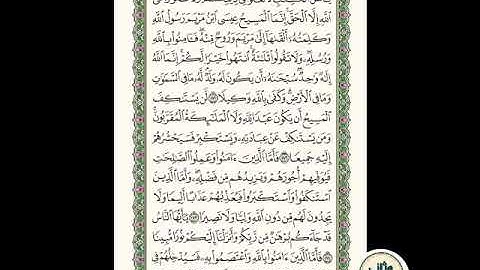 يَٰٓأَهْلَ ٱلْكِتَٰبِ لَا تَغْلُوا۟ فِى دِينِكُمْ وَلَا تَقُولُوا۟ عَلَى
ٱللَّهِ إِلَّا ٱلْحَقَّ إِنَّمَا ٱلْمَسِيحُ عِيسَى ٱبْنُ مَرْيَمَ رَسُولُ ٱللَّهِ
وَكَلِمَتُهُۥٓ أَلْقَىٰهَآ إِلَىٰ مَرْيَمَ وَرُوحٌ مِّنْهُ فَـَٔامِنُوا۟ بِٱللَّهِ
وَرُسُلِهِۦ وَلَا تَقُولُوا۟ ثَلَٰثَةٌ ٱنتَهُوا۟ خَيْرًا لَّكُمْ إِنَّمَا ٱللَّهُ
إِلَٰهٌ وَٰحِدٌ سُبْحَٰنَهُۥٓ أَن يَكُونَ لَهُۥ وَلَدٌ لَّهُۥ مَا فِى ٱلسَّمَٰوَٰتِ
وَمَا فِى ٱلْأَرْضِ وَكَفَىٰ بِٱللَّهِ وَكِيلًا ١٧١ لَّن يَسْتَنكِفَ
ٱلْمَسِيحُ أَن يَكُونَ عَبْدًا لِّلَّهِ وَلَا ٱلْمَلَٰٓئِكَةُ ٱلْمُقَرَّبُونَ
وَمَن يَسْتَنكِفْ عَنْ عِبَادَتِهِۦ وَيَسْتَكْبِرْ فَسَيَحْشُرُهُمْ
إِلَيْهِ جَمِيعًا ١٧٢ فَأَمَّا ٱلَّذِينَ ءَامَنُوا۟ وَعَمِلُوا۟ ٱلصَّٰلِحَٰتِ
فَيُوَفِّيهِمْ أُجُورَهُمْ وَيَزِيدُهُم مِّن فَضْلِهِۦ وَأَمَّا ٱلَّذِينَ
ٱسْتَنكَفُوا۟ وَٱسْتَكْبَرُوا۟ فَيُعَذِّبُهُمْ عَذَابًا أَلِيمًا وَلَا
يَجِدُونَ لَهُم مِّن دُونِ ٱللَّهِ وَلِيًّا وَلَا نَصِيرًا ١٧٣ يَٰٓأَيُّهَا ٱلنَّاسُ
قَدْ جَآءَكُم بُرْهَٰنٌ مِّن رَّبِّكُمْ وَأَنزَلْنَآ إِلَيْكُمْ نُورًا مُّبِينًا
١٧٤ فَأَمَّا ٱلَّذِينَ ءَامَنُوا۟ بِٱللَّهِ وَٱعْتَصَمُوا۟ بِهِۦ فَسَيُدْخِلُهُمْ فِى